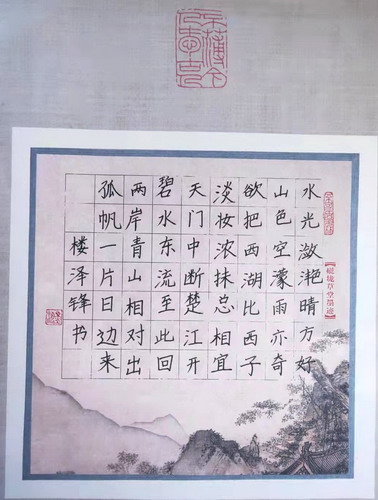 水光潋滟晴方好
山色空濛雨亦奇
欲把西湖比西子
淡妆浓抹总相宜
天门中断楚江开
碧水东流至此回
两岸青山相对出
孤帆一片日边来
楼泽锋书